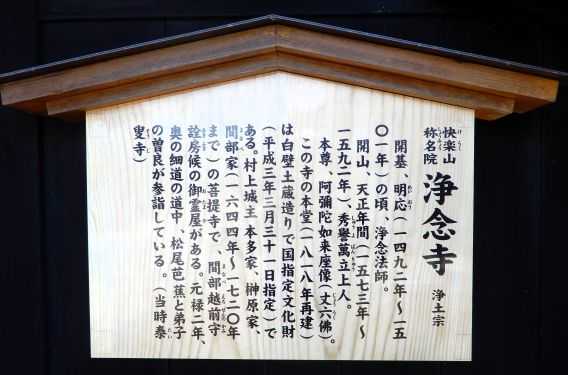 快楽山
称名院
浄念寺 浄土宗
開基、明応(一四九二年~一五
〇一年)の頃、浄念法師。
開山、天正年間(一五七三年~
一五九二年)、秀誉萬立上人。
本尊、阿彌陀如来座像(丈六佛)。
この寺の本堂(一八一八年再建)
は白壁土蔵造りで国指定文化財
(平成三年三月三十一日指定)で
ある。村上城主 本多家、榊原家、
間部家(一六四四年~一七二〇年
まで)の菩提寺で、間部越前守
詮房候の御霊屋がある。元禄二年、
奥の細道の道中、松尾芭蕉と弟子
の曽良が参詣している。(当時泰
叟寺)